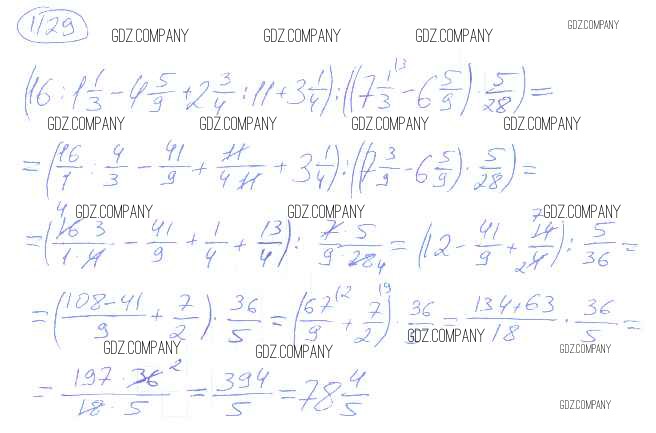 1129
GDZ.COMPANY GDZ.COMPANY GDZ.COMPANY GDZ.COMPANY
(16 : 1 1/3 - 4 5/9 + 2 3/4 : 11 + 3 1/4) : ((7 1/3 - 6 5/9) · 5/28) =
GDZ.COMPANY GDZ.COMPANY GDZ.COMPANY GDZ.COMPANY
= (16/1 : 4/3 - 41/9 + 11/(4 · 11) + 3 1/4) : ((7 3/9 - 6 5/9) · 5/28) =
GDZ.COMPANY GDZ.COMPANY GDZ.COMPANY
= ((16 · 3)/(1 · 4) - 41/9 + 1/4 + 13/4) : (7 · 5)/(9 · 28) = (12 - 41/9 + 14/4) : 5/36 =
= ((108 - 41)/9 + 7/2) · 36/5 = (67/9 + 7/2) · 36/5 = (134 + 63)/18 · 36/5 =
GDZ.COMPANY GDZ.COMPANY GDZ.COMPANY GDZ.COMPANY
= (197 · 36)/(18 · 5) = 394/5 = 78 4/5
GDZ.COMPANY